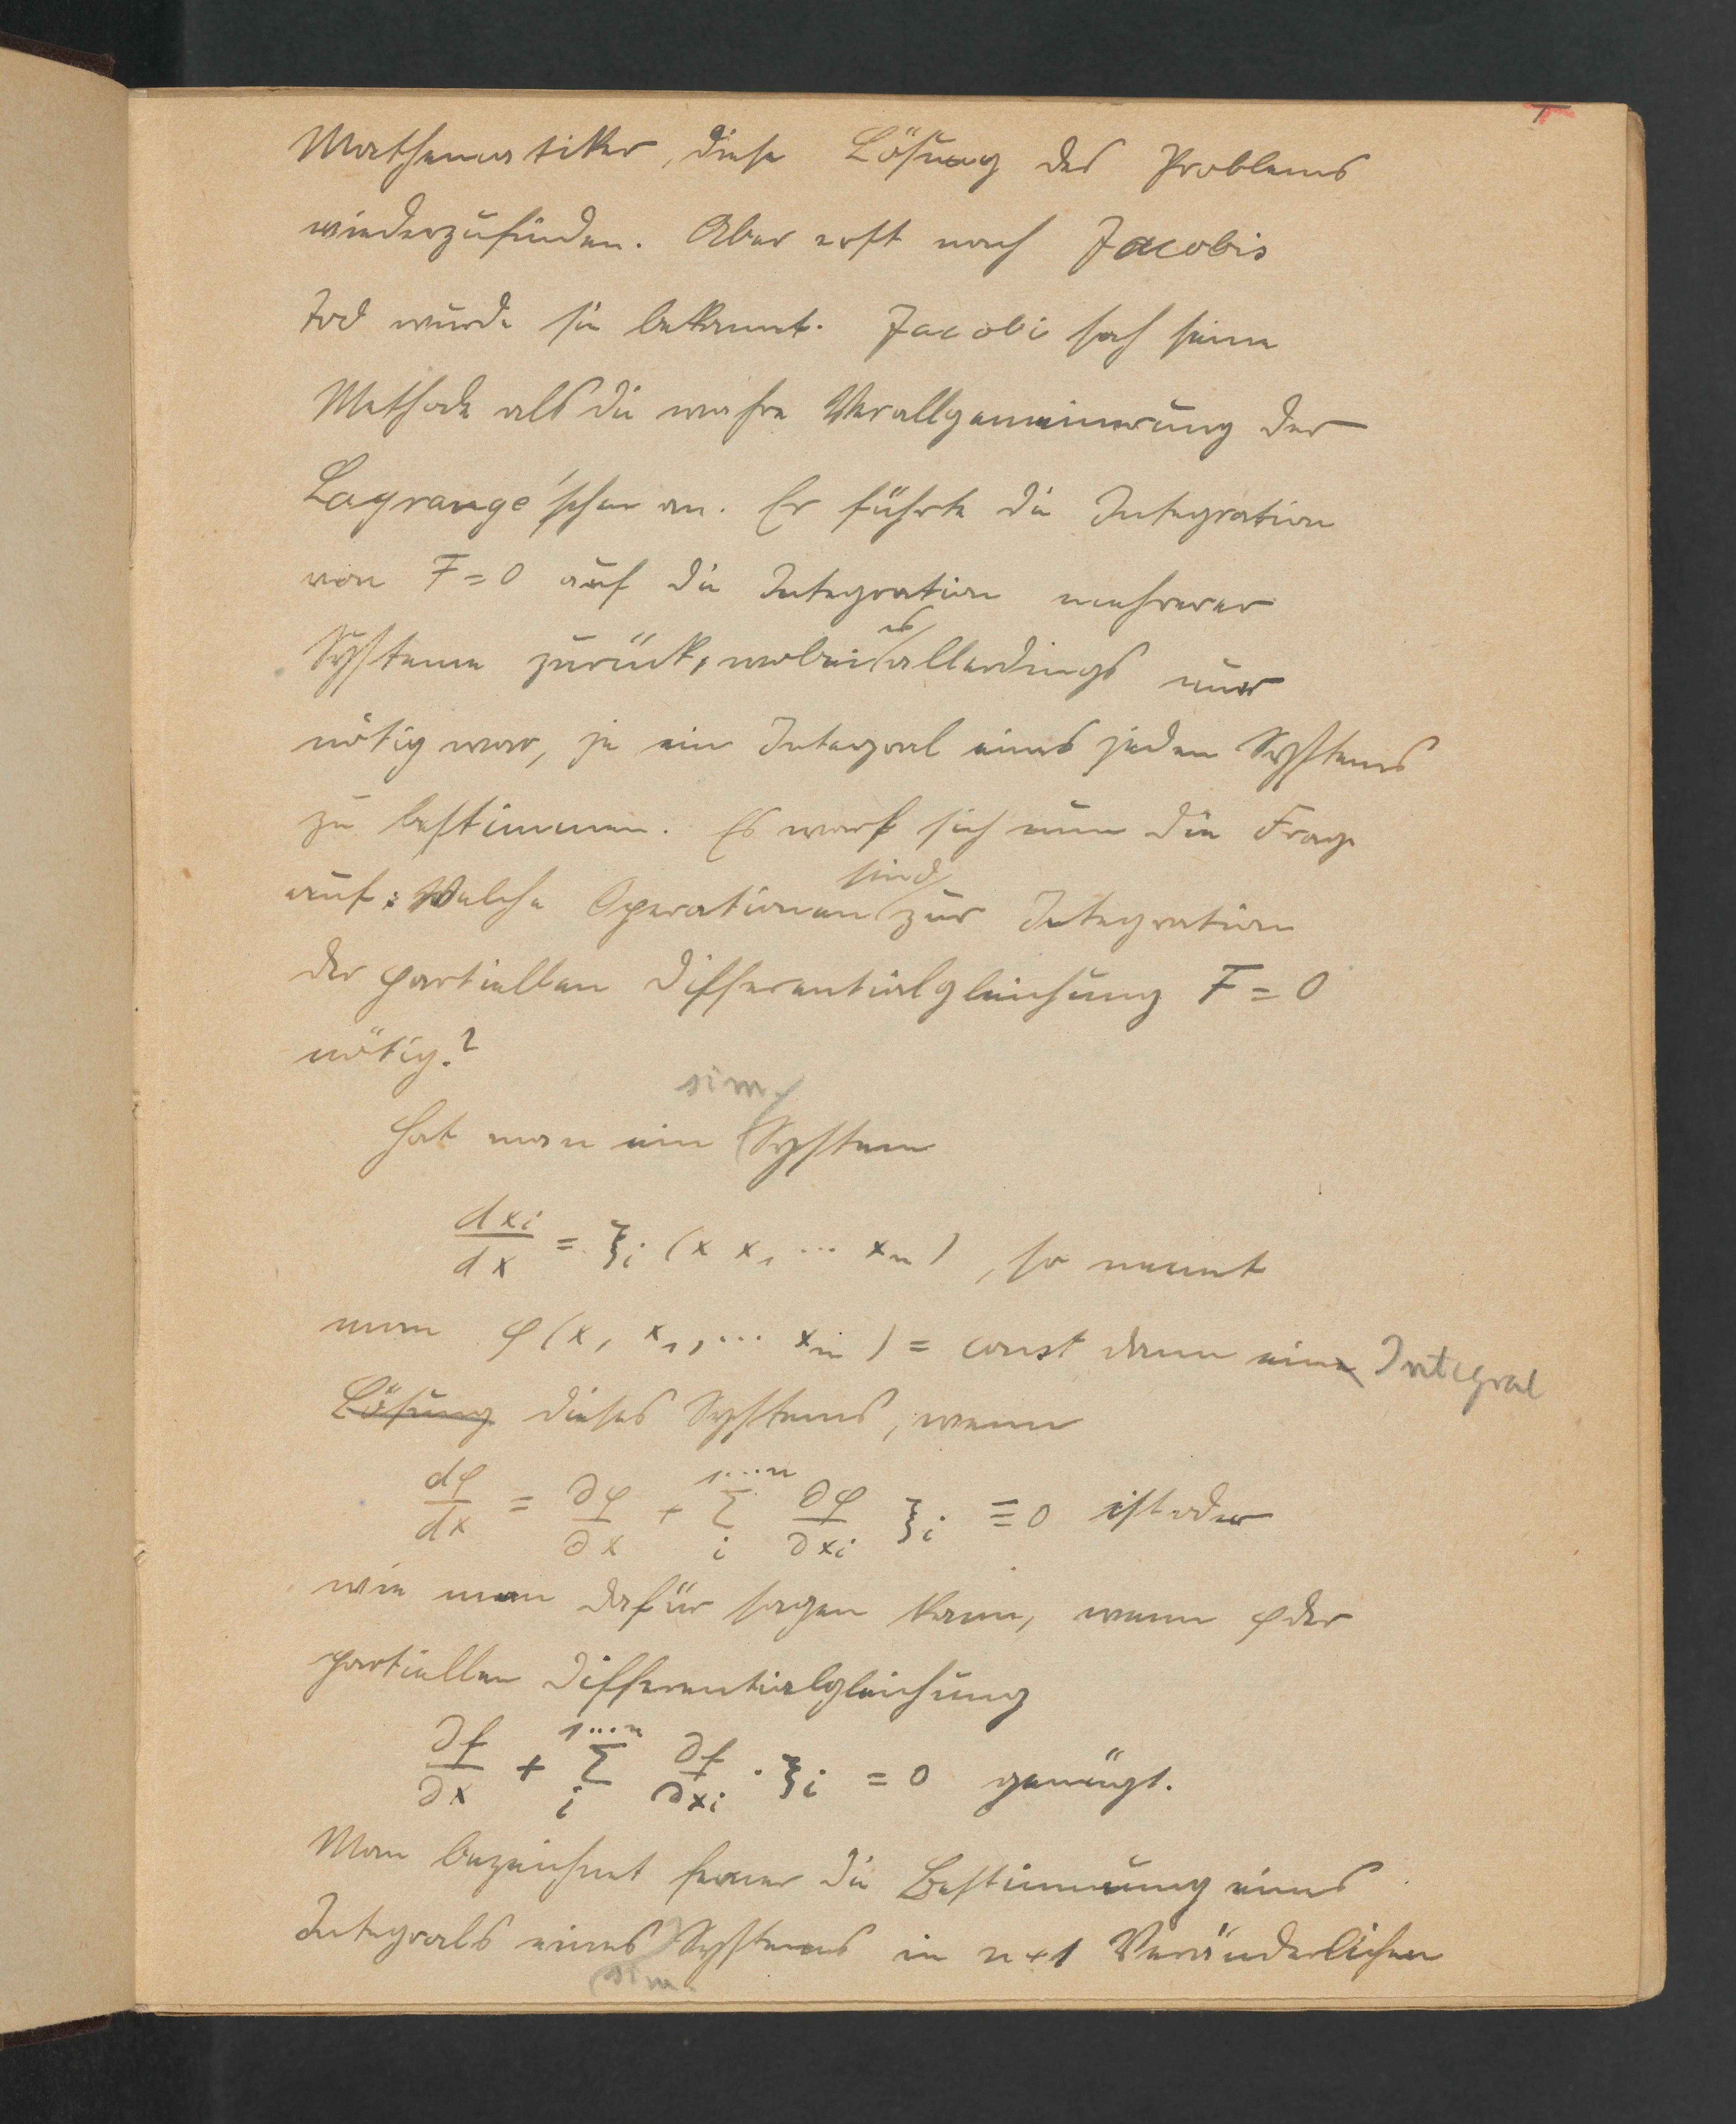 Mathematiker, diese Lösung des Problems
wiederzufinden. Aber erst nach Jacobis
Tod wurde sie bekannt. Jacobi sah seine
Methode als die wahre Verallgemeinerung der
Lagrange'schen an. Er führte die Integration
von F = 0 auf die Integration mehrerer
Systeme zurück, wobei es allerdings nur
nötig war, je ein Integral eines jeden Systems
zu bestimmen. Es warf sich nun die Frage
auf: Welche Operationen sind zur Integration
der partiellen Differentialgleichung F = 0
nötig?
Hat man ein sim. System
dxi/dx = ξi (x x1 ... xn), so nennt
man φ(x, x1, ... xn) = const dann ein Integral
Lösung dieses Systems, wenn
dφ/dx = ∂φ/∂x + Σ_i^{1....n} ∂φ/∂xi ξi ≡ 0 ist oder
wie man dafür sagen kann, wenn φ der
partiellen Differentialgleichung
∂f/∂x + Σ_i^{1...n} ∂f/∂xi · ξi = 0 genügt.
Man bezeichnet ferner die Bestimmung eines
Integrals eines sim. Systems in n+1 Veränderlichen